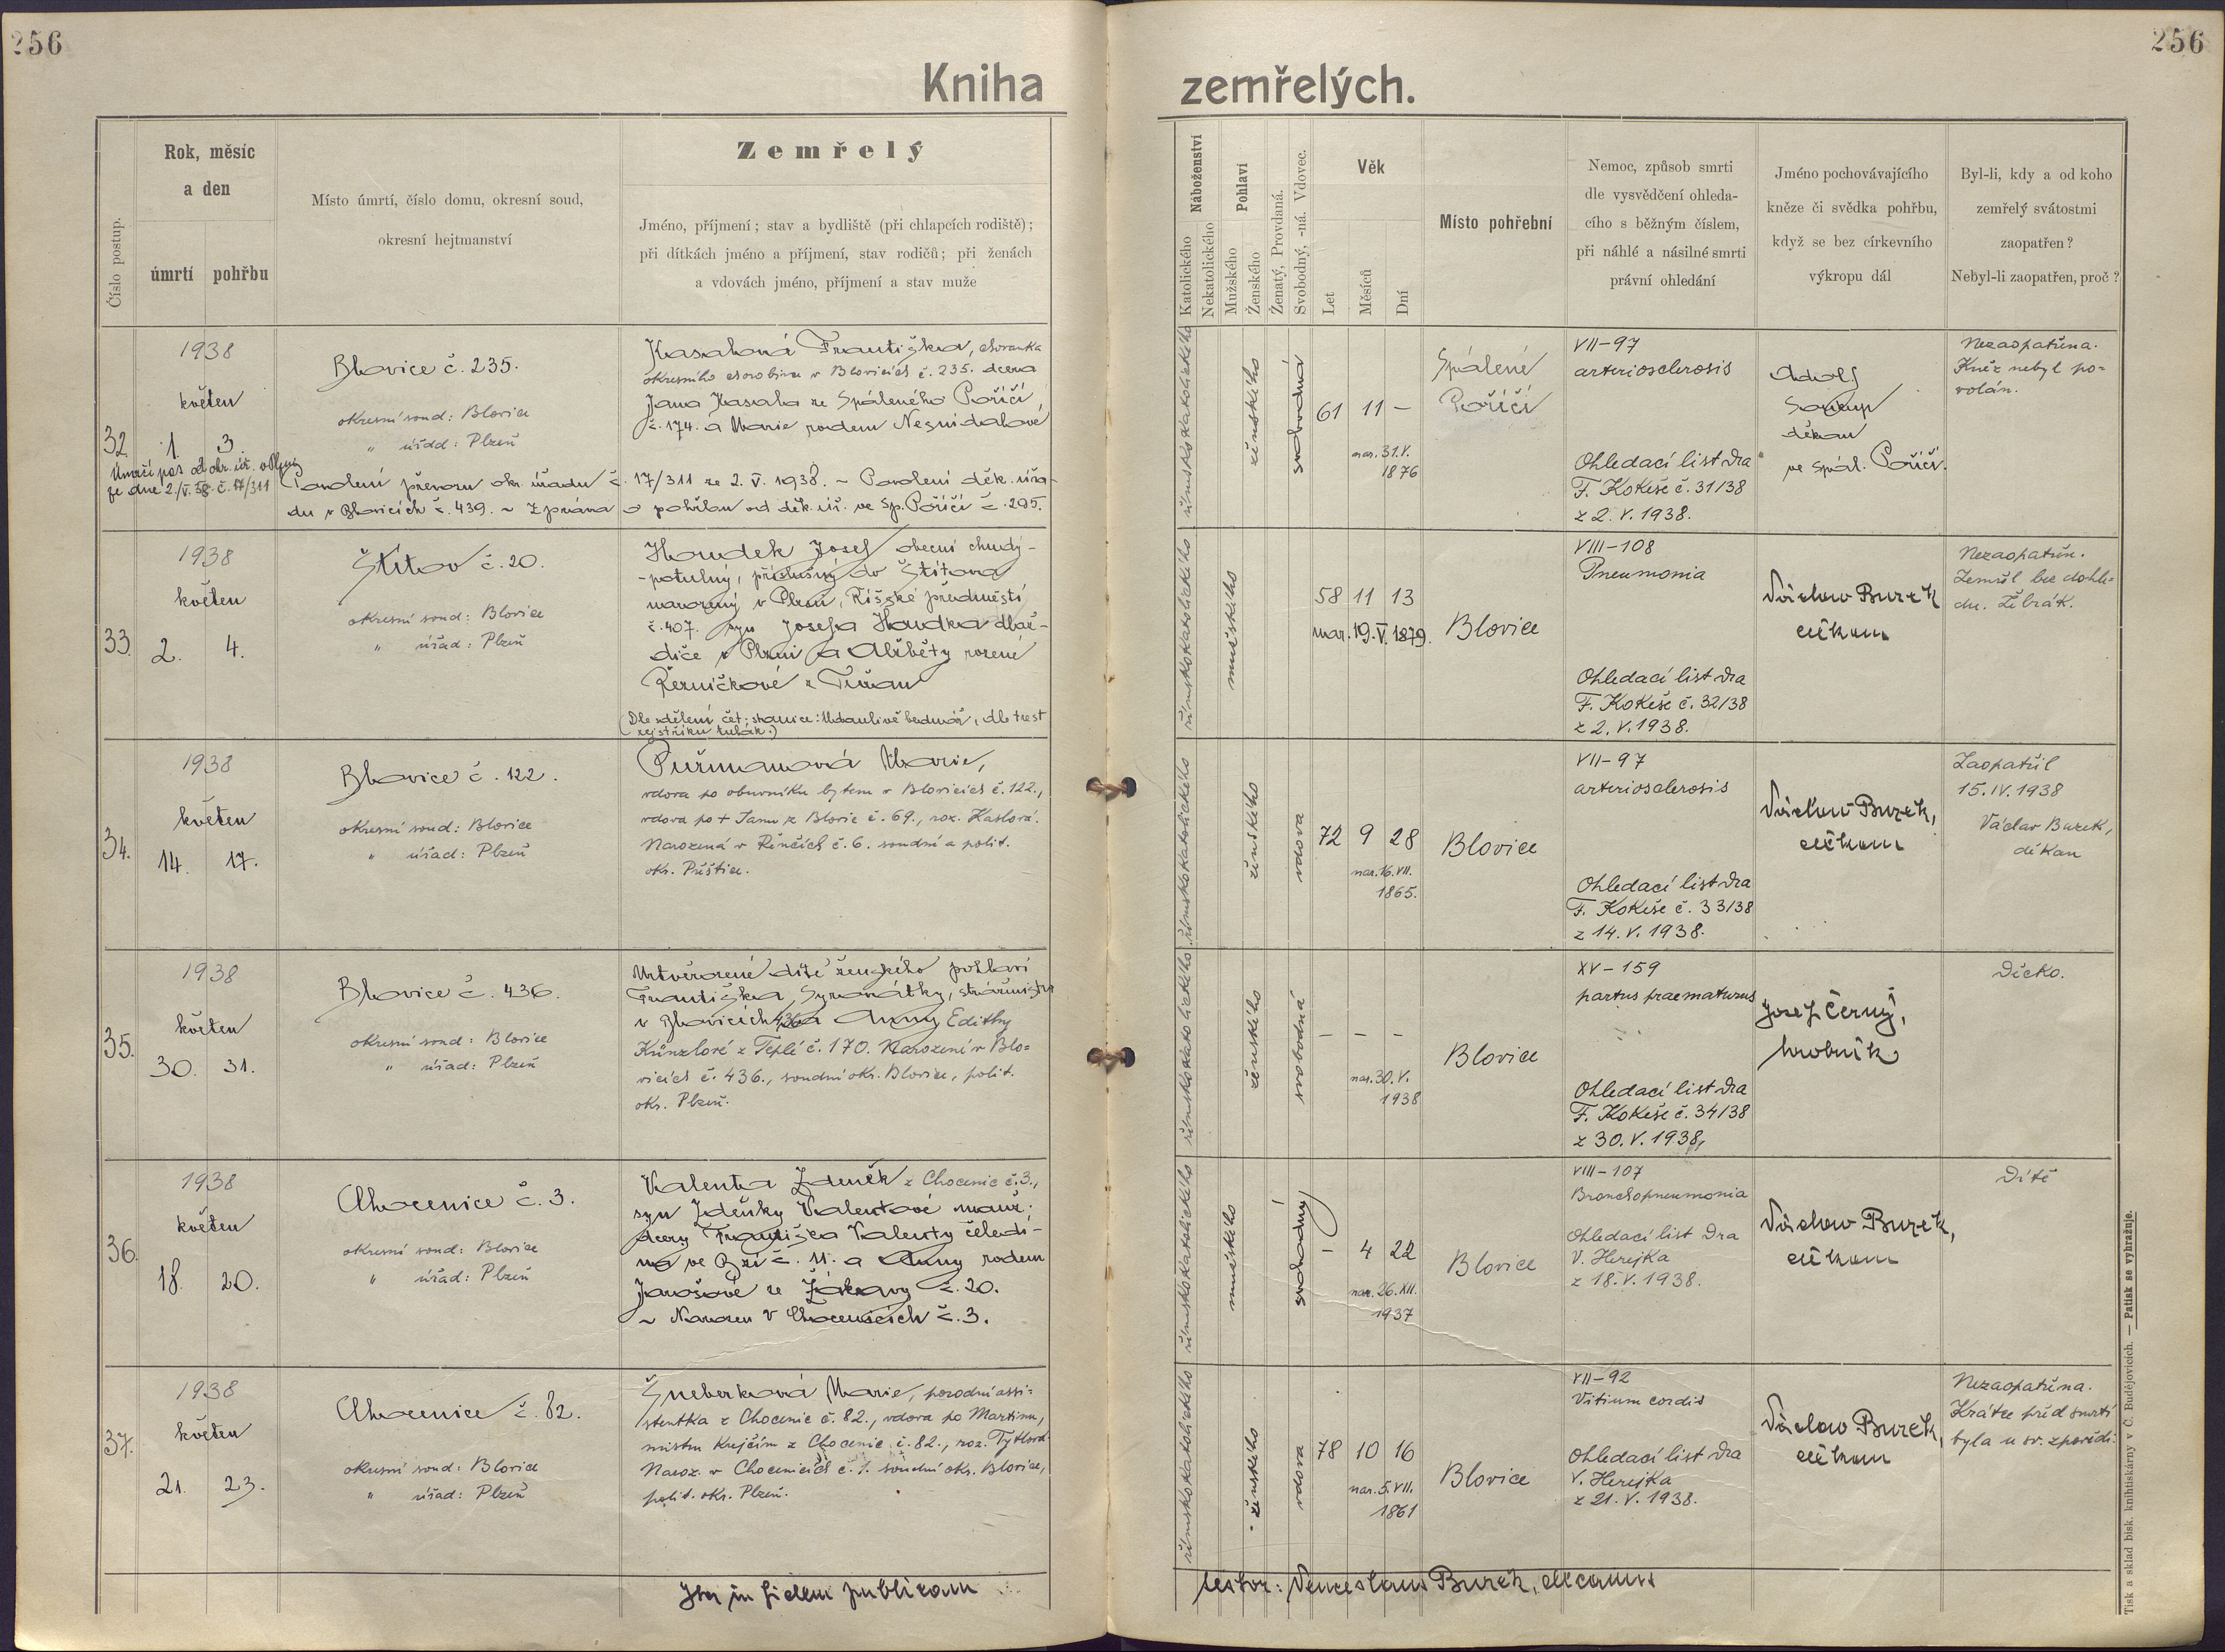 256
256
Kniha zemřelých.
Číslo postup.
Rok, měsíc
a den
úmrtí pohřbu
Místo úmrtí, číslo domu, okresní soud,
okresní hejtmanství
Zemřelý
Jméno, příjmení; stav a bydliště (při chlapcích rodiště);
při dítkách jméno a příjmení, stav rodičů; při ženách
a vdovách jméno, příjmení a stav muže
Náboženství
Katolického
Nekatolického
Pohlaví
Mužského
Ženského
Ženatý, Provdaná.
Svobodný, -ná. Vdovec.
Věk
Let
Měsíců
Dní
Místo pohřební
Nemoc, způsob smrti
dle vysvědčení ohleda-
cího s běžným číslem,
při náhlé a násilné smrti
právní ohledání
Jméno pochovávajícího
kněze či svědka pohřbu,
když se bez církevního
výkropu dál
Byl-li, kdy a od koho
zemřelý svátostmi
zaopatřen?
Nebyl-li zaopatřen, proč?
32.
1938
květen
1. 3.
Umrčí pas od okr. úř. v Plzni
ze dne 2./V. 38. č. 17/311
Blovice č. 235.
okresní soud: Blovice
" úřad: Plzeň
Kasalová Františka, chovanka
okresního chorobince v Blovicích č. 235. dcera
Jana Kasala ze Spáleného Poříčí,
č. 174. a Marie rodem Nesnídalové
Povolení převozu okr. úřadu č. 17/311 ze 2. V. 1938. ~ Povolení děk. úřa-
du v Blovicích č. 439. ~ Zpráva o pohřbu od děk. úř. ve Sp. Poříčí č. 295.
římskokatolického
ženského
svobodná
61 11 –
nar. 31. V.
1876
Spálené
Poříčí
VII-97
arteriosclerosis
Ohledací list dra
F. Kokeše č. 31/38
z 2. V. 1938.
Adolf
Soukup
děkan
ve Spál. Poříčí.
Nezaopatřena.
Kněz nebyl po=
volán.
33.
1938
květen
2. 4.
Štítov č. 20.
okresní soud: Blovice
" úřad: Plzeň
Houdek Josef obecní chudý-
-potulný, příslušný do Štítova
narozený v Plzni, Říšské předměstí
č. 407. syn Josefa Houdka dlaž-
diče v Plzni a Alžběty rozené
Řezníčkové z
(Dle sdělení čet. stanice: Udanlivě bednář, dle trest.
rejstříku tulák.)
římskokatolického
mužského
58 11 13
nar. 19. V. 1879.
Blovice
VIII-108
Pneumonia
Ohledací list dra
F. Kokeše č. 32/38
z 2. V. 1938.
Václav Burek
děkan
Nezaopatřen.
Zemřel bez dohle=
du. Žebrák.
34.
1938
květen
14. 17.
Blovice č. 122.
okresní soud: Blovice
" úřad: Plzeň
Puřmanová Marie,
vdova po obuvníku bytem v Blovicích č. 122.,
vdova po + Janu z Blovic č. 69., roz. Kaslová.
Narozená v Řenčích č. 6. soudní a polit.
okr. Přeštice.
římskokatolického
ženského
vdova
72 9 28
nar. 16. VII.
1865.
Blovice
VII-97
arteriosclerosis
Ohledací list dra
F. Kokeše č. 33/38
z 14. V. 1938.
Václav Burek,
děkan
Zaopatřil
15. IV. 1938
Václav Burek,
děkan
35.
1938
květen
30. 31.
Blovice č. 436.
okresní soud: Blovice
" úřad: Plzeň
Mrtvěrozené dítě ženského pohlaví
Františka Syrovátky, strážmistra
v Blovicích 436 a Anny Edithy
Künzlové z Teplé č. 170. Narozené v Blo=
vicích č. 436., soudní okr. Blovice, polit.
okr. Plzeň.
římskokatolického
ženského
svobodná
– – –
nar. 30. V.
1938
Blovice
XV-159
partus praematurus
Ohledací list dra
F. Kokeše č. 34/38
z 30. V. 1938,
Josef Černý,
hrobník
Děcko.
36.
1938
květen
18. 20.
Chocenice č. 3.
okresní soud: Blovice
" úřad: Plzeň
Valenta Zdeněk z Chocenic č. 3.,
syn Zdeňky Valentové
dcery Františka Valenty čeledí-
na ve Bzí č. 11. a Anny rodem
Jarošové ze Žákavy č. 20.
~ Narozen v Chocenicích č. 3.
římskokatolického
mužského
svobodný
– 4 22
nar. 26. XII.
1937
Blovice
VIII-107
Bronchopneumonia
Ohledací list dra
V. Herejka
z 18. V. 1938.
Václav Burek,
děkan
Dítě
37.
1938
květen
21. 23.
Chocenice č. 82.
okresní soud: Blovice
" úřad: Plzeň
Šneberková Marie, porodní assi=
stentka z Chocenic č. 82., vdova po Martinu,
mistru krejčím z Chocenic č. 82., roz. Tytlová
Naroz. v Chocenicích č. 1. soudní okr. Blovice,
polit. okr. Plzeň.
římskokatolického
ženského
vdova
78 10 16
nar. 5. VII.
1861
Blovice
VII-92
Vitium cordis
Ohledací list dra
V. Herejka
z 21. V. 1938.
Václav Burek,
děkan
Nezaopatřena.
Krátce před smrtí
byla u sv. zpovědi.
Ita in fidem publicam testor: Venceslaus Burek, decanus
Tisk a sklad bisk. knihtiskárny v Č. Budějovicích. — Patisk se vyhražuje.